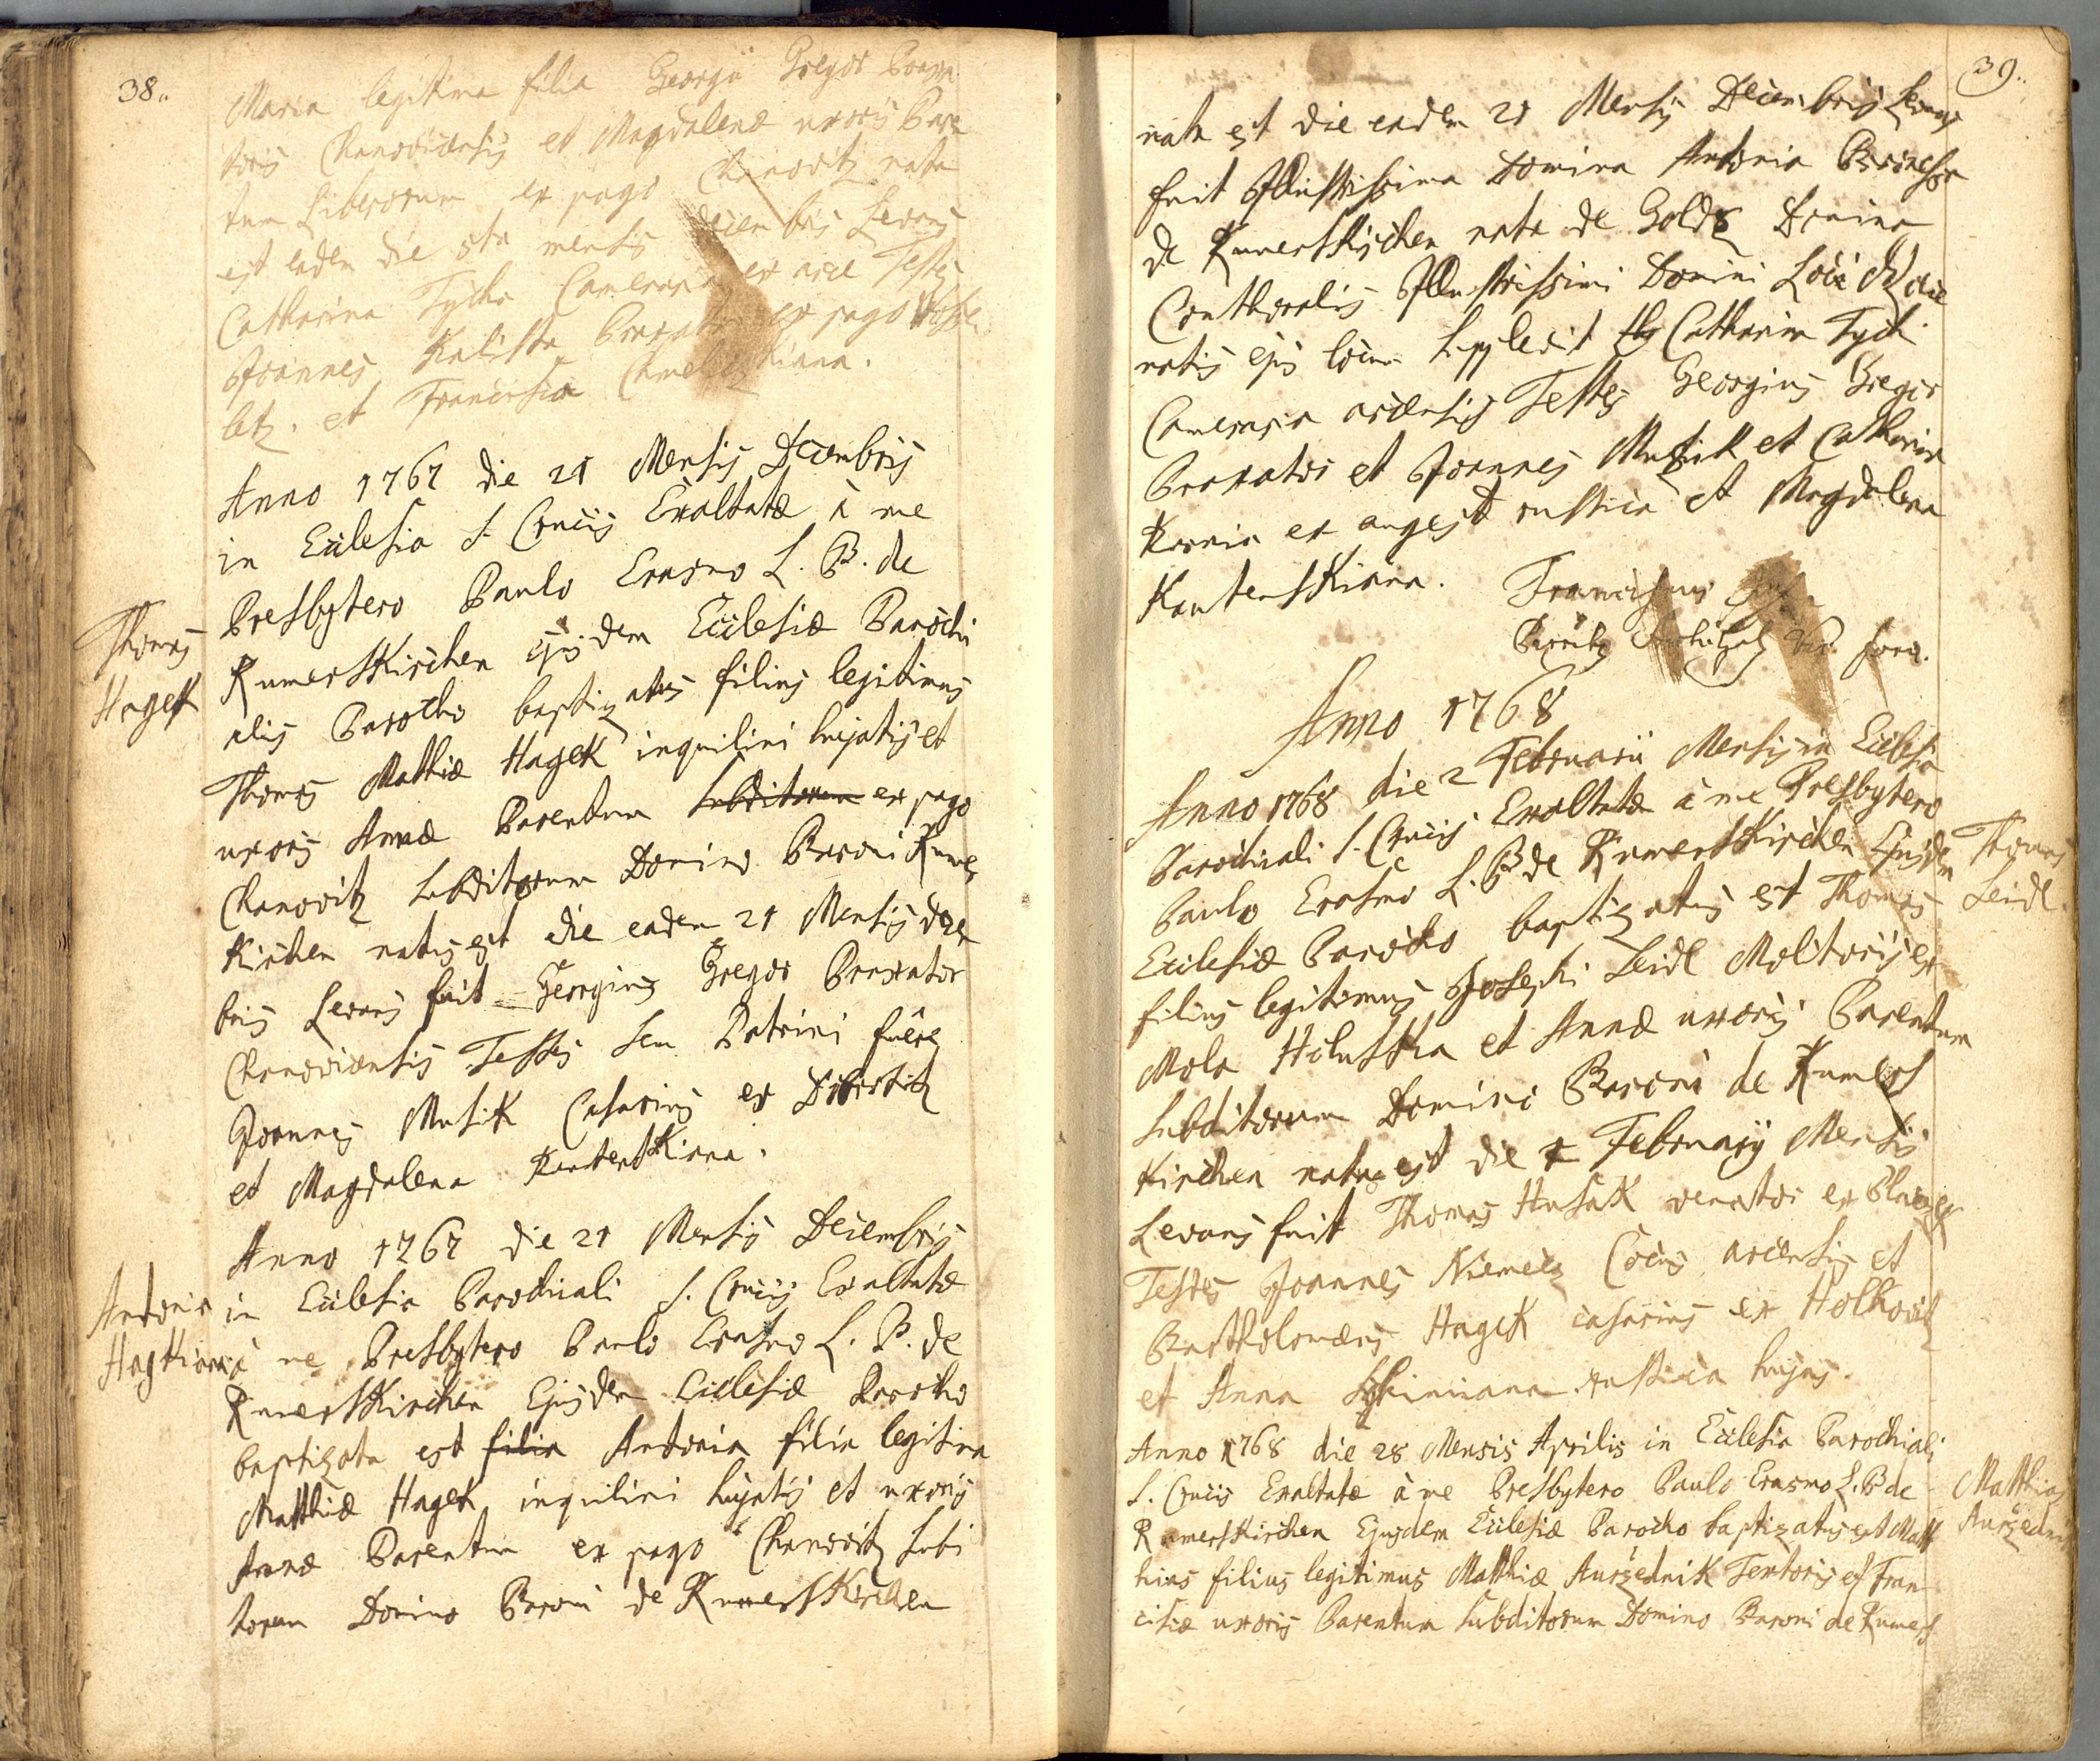 38.
Maria legitima filia Georgii Gregor Braxa
toris Chanovicensis et Magdalenæ uxoris Paren
tum Liberorum ex pago Chanovitz nata
est eadem die mensis Decembris Levans
Catharina Tycka Cameraria ex arce Testes
Joannes Kalista Braxator ex pago
letz. et Francisca
Anno 1767 die 21 Mensis Decembris
in Ecclesia S. Crucis Exaltatæ à me
Presbytero Paulo Erasmo L. B. de
Thomas
Rumerskirchen ejusdem Ecclesiæ Parochi
Hagek
alis Parocho baptizatus filius legitimus
Thomas Mathiæ Hagek inquilini hujatis et
uxoris Annæ Parentum subditorum ex pago
Chanovitz subditorum Domino Baroni Rumers
kirchen natus est die eadem 21 Mensis Decem
bris Levans fuit Georgius Gregor Braxator
Chanovicensis Testes seu Patrini fuêre
Joannes Musik Casarius ex
et Magdalena Kautenskiana.
Anno 1767 die 21 Mensis Decembris
Antonia
in Ecclesia Parochiali S. Crucis Exaltatæ
Hagkiana
à me Presbytero Paulo Erasmo L. B. de
Rumerskirchen Ejusdem Ecclesiæ Parocho
baptizata est filia Antonia filia legitima
Matthiæ Hagek inquilini hujatis et uxoris
Annæ Parentum ex pago Chanovitz subi
torum Domino Baroni de Rumerskirchen
39.
nata est die eadem 21 Mensis Decembris Levans
fuit Illustrissima Domina Antonia Baronessa
de Rumerskirchen nata de Goldz Domina
Conthoralis Illustrissimi Domini Loci
natis ejus locum supplevit Catharina Tyck
Cameraria arcensis Testes Georgius Gregor
Braxator et Joannes Musik et Catharina
ex augezd rustica et Magdalena
Kautenskiana.
Franciscus
Anno 1768
Anno 1768 die 2 Februarii Mensis in Ecclesia
Parochiali S. Crucis Exaltatæ à me Presbytero
Thomas
Paulo Erasmo L. B de Rumerskirchen Ejusdem
Seidl.
Ecclesiæ Parocho baptizatus est Thomas
filius legitimus Josephi Seidl Molitoris ex
Mola Holuska et Annæ uxoris Parentum
Subditorum Domini Baroni de Rumers
kirchen natus est die Februarij Mensis
Levans fuit Thomas Husak venator ex
Testes Joannes Niemecz Cocus arcensis et
Bartholomæus Hagek casarius ex Holkovitz
et Anna rustica hujus.
Anno 1768 die 28 Mensis Aprilis in Ecclesia Parochiali
S. Crucis Exaltatæ à me Presbytero Paulo Erasmo L. B de
Matthias
Rumerskirchen Ejusdem Ecclesiæ Parocho baptizatus est Matt
Auržednik
hias filius legitimus Matthiæ Auržednik Textoris et Fran
ciscæ uxoris Parentum subditorum Domino Baroni de Rumers